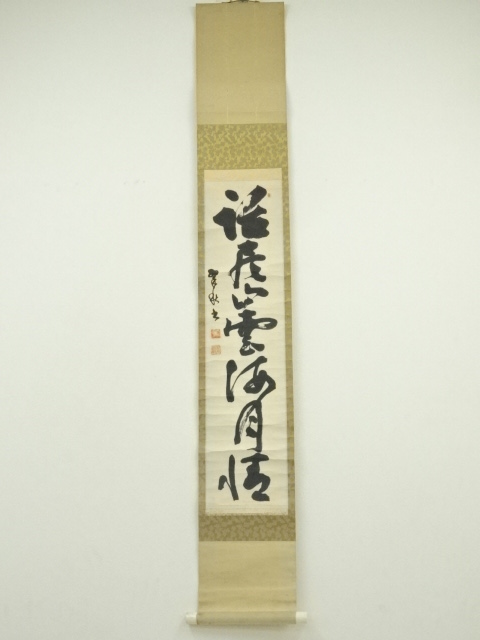 話尽山雲海月情